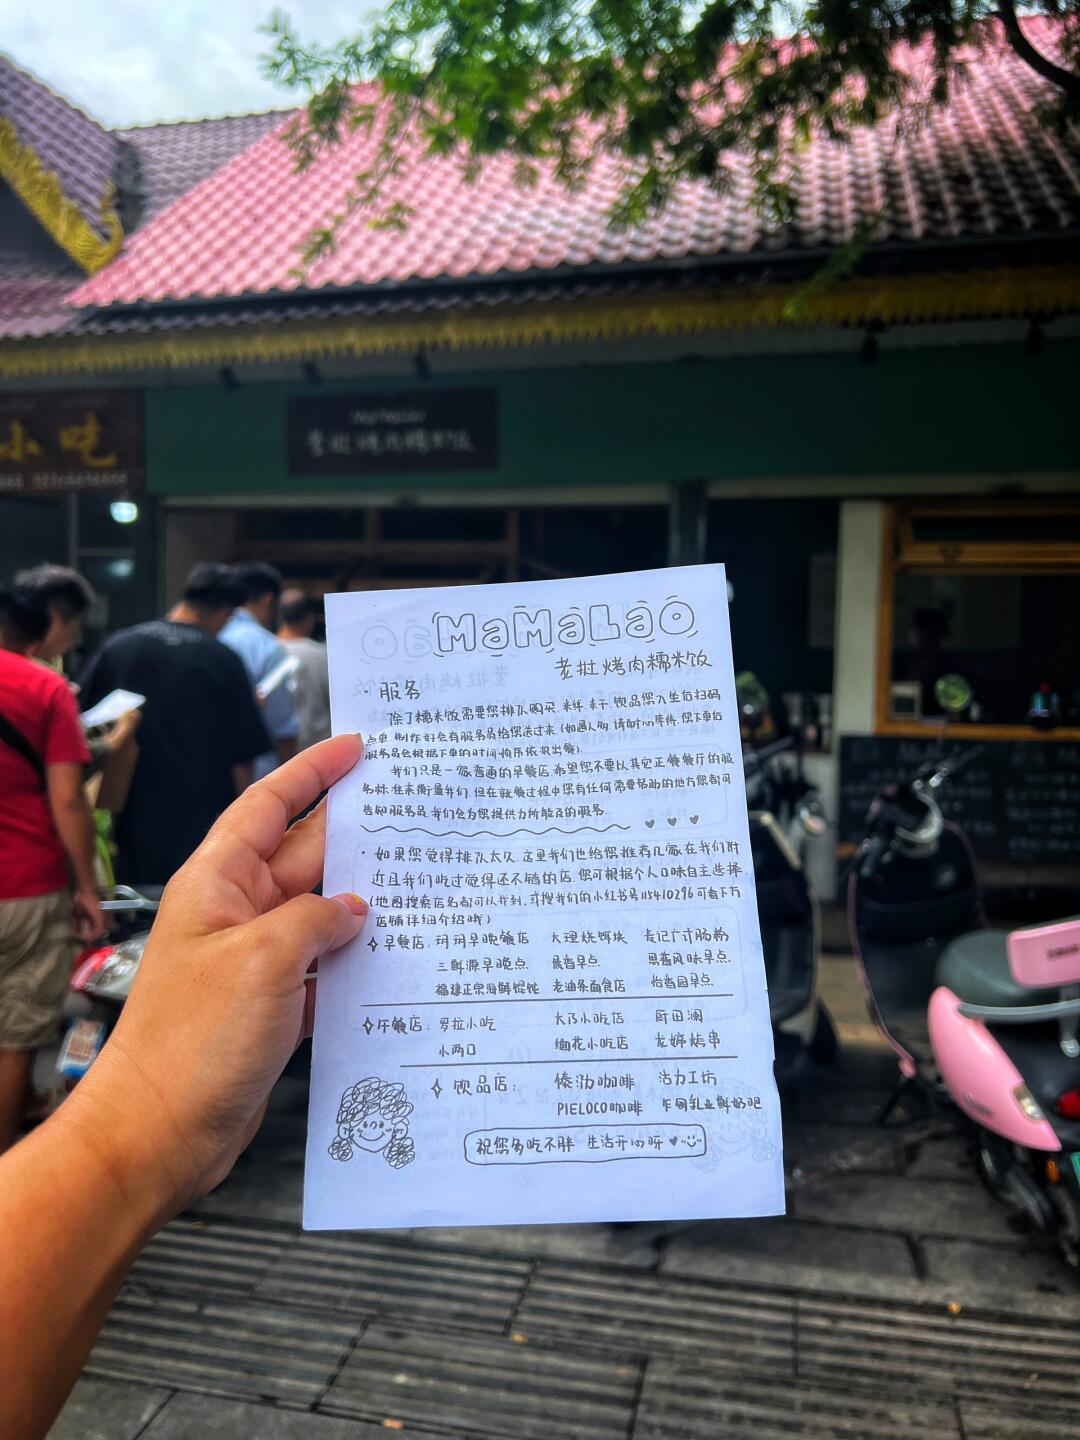 小吃
MaMaLao
老挝烤肉糯米饭
MaMaLao
老挝烤肉糯米饭
· 服务
除了糯米饭需要您排队购买.米线.米干.饮品您入坐后扫码
点单.制作好会有服务员给您送过来.(如遇人多.请耐心等待.您下单后
服务员会根据下单的时间.顺序依次出餐).
我们只是一家普通的早餐店.希望您不要以其它正餐餐厅的服
务标准来衡量我们.但在就餐过程中您有任何需要帮助的地方您都可
告知服务员.我们会为您提供力所能及的服务.
· 如果您觉得排队太久.这里我们也给您推荐几家在我们附
近且我们吃过觉得还不错的店.您可根据个人口味自主选择.
(地图搜索店名都可以找到.或搜我们的小红书号115410296可看下方
店铺详细介绍哦)
早餐店: 玥玥早晚餐店 大理烧饵块 袁记广式肠粉
三鲜源早晚点 晨香早点 思茜风味早点
福建正宗海鲜馄饨 老油条面食店 怡香园早点
午餐店: 罗拉小吃 大乃小吃店 厨田澜
小两口 缅花小吃店 龙婷烤串
饮品店: 傣泐咖啡 活力工坊
PIELOCO咖啡 乍甸乳业鲜奶吧
祝您多吃不胖 生活开心呀